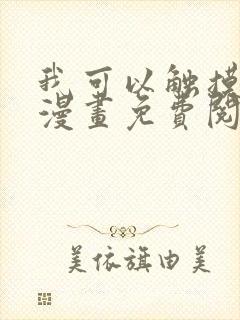 我可以触摸
漫畫免費閱
美依旗由美